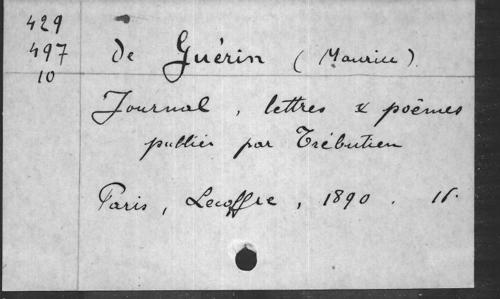 429
497
10
de Guérin (Maurice).
Journal, lettres & poèmes
publiés par Trébutien
Paris, Lecoffre, 1890. 16.